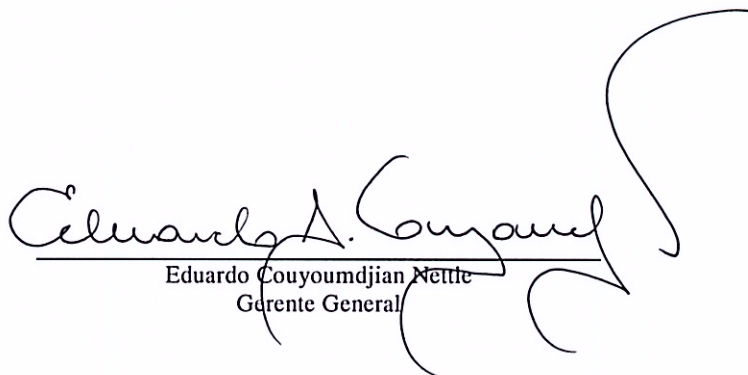 Eduardo A. Couyoumd
Eduardo Couyoumdjian Nettle
Gerente General